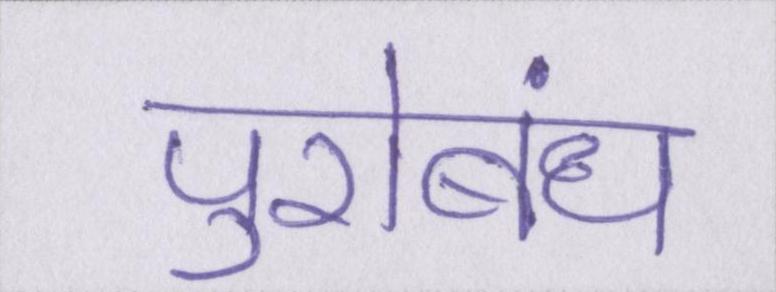 पुरोबंध